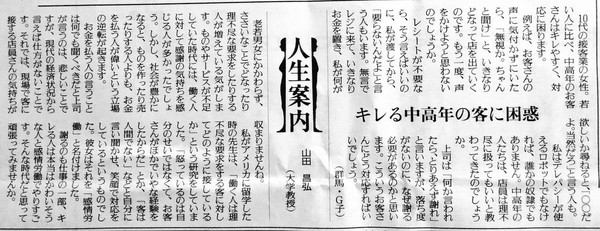 10代の接客業の女性。若
い人に比べ、中高年のお客
さんはキレやすく、対
応に困ります。
例えば、お客さんの
声に気付かずにいた
ら、「無視か。ちゃん
と聞け」と、いきなり
どなって店を出ていく
のです。もう一度、声
をかけようと思わない
のでしょうか。
レシートが不要な
ら、そう言えばいいの
に、私が渡してから
「要らないんだ」と言う
人もいます。無言で
レジに来て、いきなり
お金を置き、私が何が
欲しいか尋ねると「〇〇だ
よ。当然だろ」と言う人も。
私はテレパシーが使
えるロボットでもなけ
れば、誰かの奴隷でも
ありません。中高年の
人たちは、店員は理不
尽に扱ってもいいと教
わってきたのでしょうか。
上司は「何か言われ
たらとりあえず謝れ」
と言いますが、落ち度
がないのに、なぜ謝る
必要があるのかと思い
ます。こういうお客さ
んにどう対応すればい
いでしょう。
(群馬・G子)
キレる中高年の客に困惑
人生案内
山田 昌弘
(大学教授)
老若男女にかかわらず、
ささいなことでどなったり
理不尽な要求をしたりする
人が増えている気がしま
す。ものやサービスが不足
していた時代には、働く人
に対して感謝の気持ちを感
じる人が多かったでしょ
う。しかし、社会が豊かに
なると、ものを作ったり売
ったりする人よりも、お金
を払う人が偉いという立場
の逆転が起きます。
お金を払う人の言うこと
は何でも聞くべきだと上司
が言うのは、悲しいことで
すが、現代の経済状況から
言えば仕方がないことで
す。それでは、現場で客に
接する店員さんの気持ちが
収まりませんね。
私がアメリカに留学した
時の先生は、「働く人は理
不尽な要求をする客に対し
てどのように接している
か」という研究をしていま
した。「怒っているのは自
分のせいではなくて、お客
さんはかつていやな経験を
したからだ」とか「客は
人間でない」などと自分に
言い聞かせ、笑顔で対応を
しているというものでし
た。彼女はそれを「感情労
働」と名付けました。
謝るのも仕事の一部、キ
レる人は本当はかわいそう
な人と感情労働でやりすご
す。そんな時代だと思って
頑張ってみませんか。